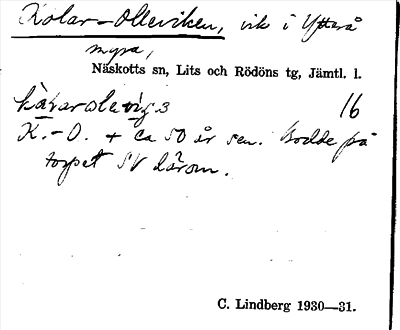 Kolar-Olleviken, vik i Ytterå
myra,
Näskotts sn, Lits och Rödöns tg, Jämtl. l.
16
K.-O. + ca 50 år sen. Bodde på
torpet SV därom.
C. Lindberg 1930—31.